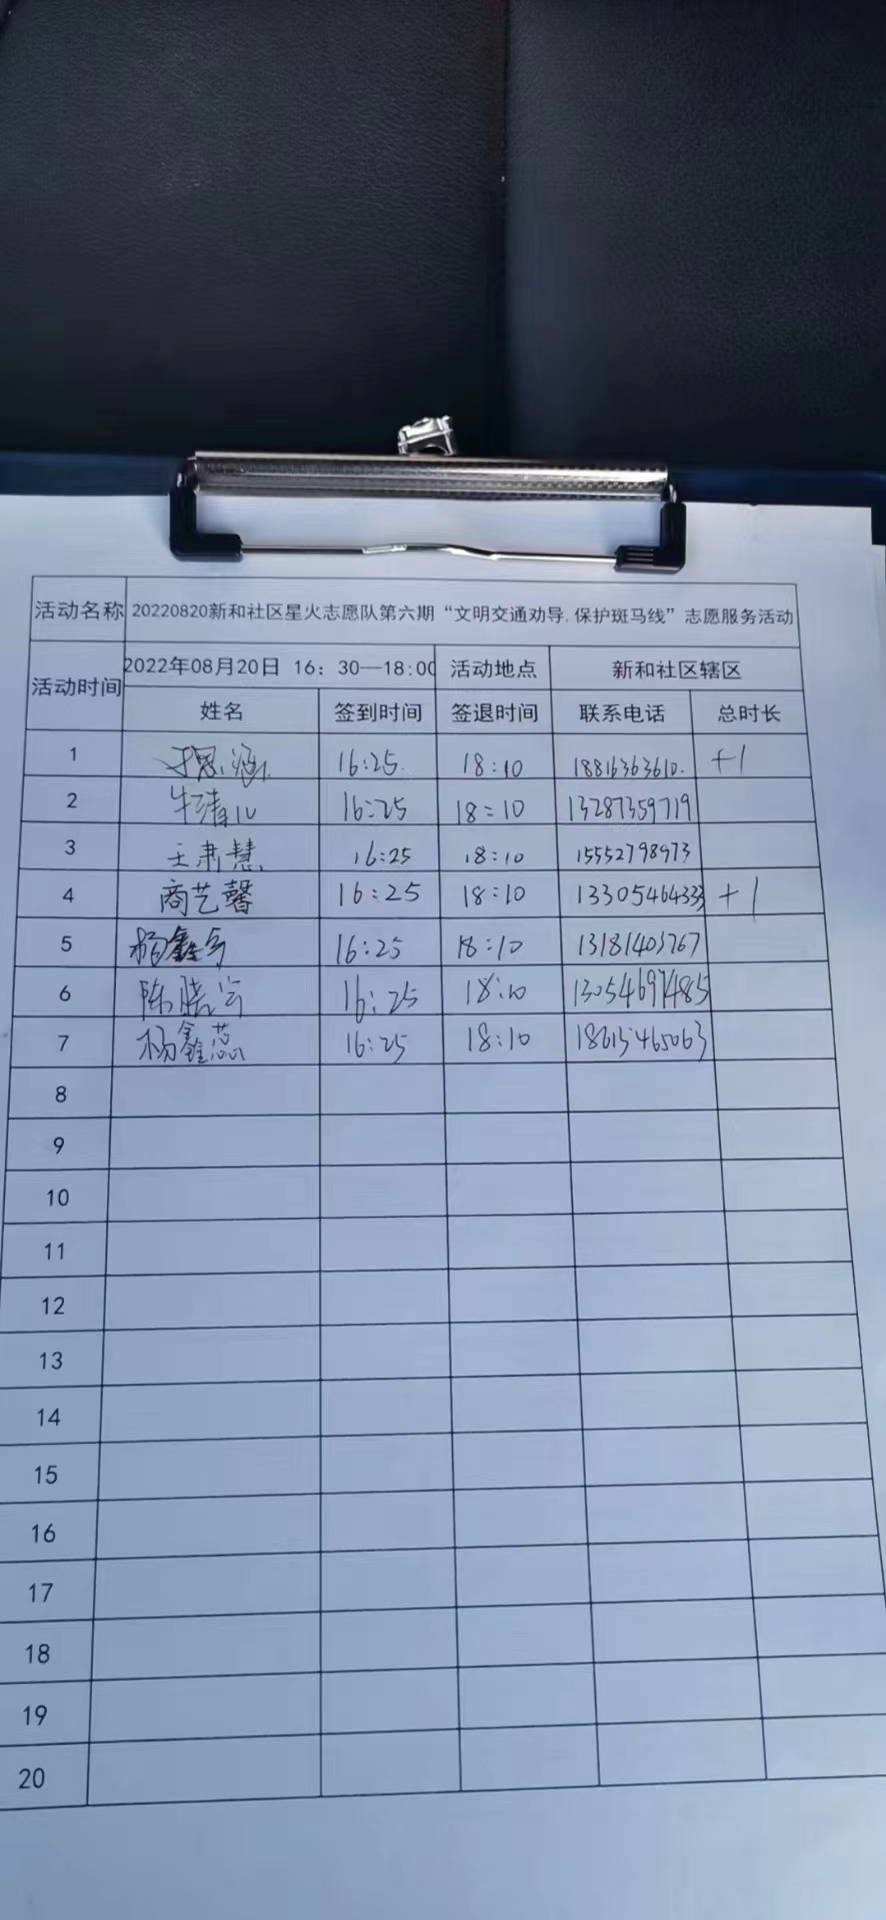 活动名称 20220820新和社区星火志愿队第六期“文明交通劝导,保护斑马线”志愿服务活动
活动时间 2022年08月20日 16：30—18:00 活动地点 新和社区辖区
姓名 签到时间 签退时间 联系电话 总时长
1 于思涵 16:25 18:10 18816363610 +1
2 牛靖 16:25 18:10 13287359719
3 王肃慧 16:25 18:10 15552798973
4 商艺馨 16:25 18:10 13305464333 +1
5 杨鑫 16:25 18:10 13181403767
6 陈晓 16:25 18:10 13054697485
7 杨鑫蕊 16:25 18:10 18615465063
8
9
10
11
12
13
14
15
16
17
18
19
20